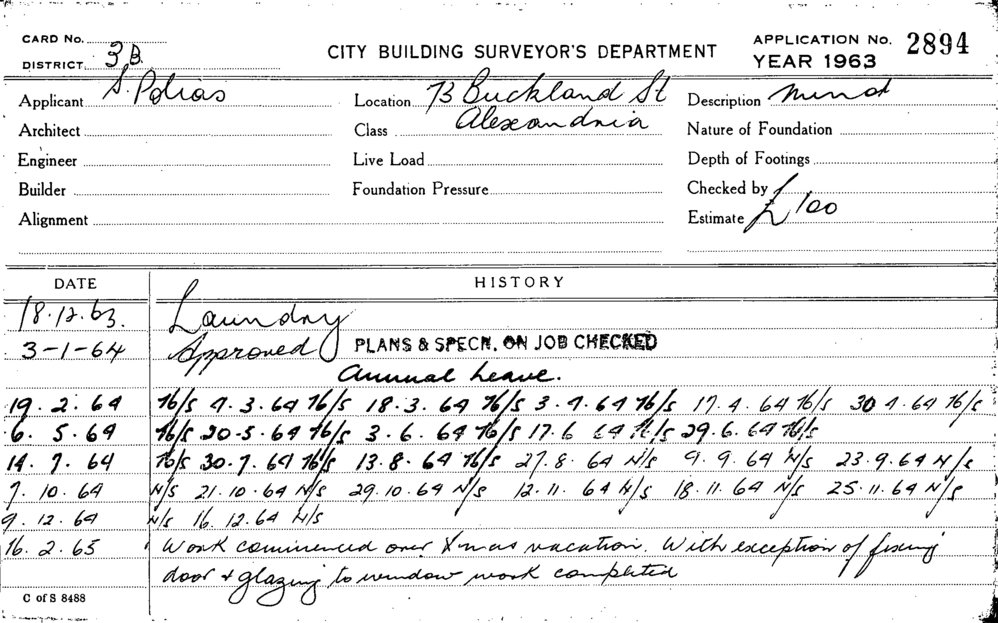 CARD No.
DISTRICT 3B.
CITY BUILDING SURVEYOR'S DEPARTMENT
APPLICATION No. 2894
YEAR 1963
Applicant S. Polias
Location 73 Buckland St
Description Minor
Architect
Class Alexandria
Nature of Foundation
Engineer
Live Load
Depth of Footings
Builder
Foundation Pressure
Checked by
Alignment
Estimate £100
DATE HISTORY
18.12.63. Laundry
3-1-64 Approved PLANS & SPECN. ON JOB CHECKED
Annual Leave.
19.2.64 N/S 4.3.64 N/S 18.3.64 N/S 3.4.64 N/S 17.4.64 N/S 30.4.64 N/S
6.5.64 N/S 20.5.64 N/S 3.6.64 N/S 17.6.64 N/S 29.6.64 N/S
14.7.64 N/S 30.7.64 N/S 13.8.64 N/S 27.8.64 N/S 9.9.64 N/S 23.9.64 N/S
7.10.64 N/S 21.10.64 N/S 29.10.64 N/S 12.11.64 N/S 18.11.64 N/S 25.11.64 N/S
9.12.64 N/S 16.12.64 N/S
16.2.65 Work commenced over Xmas vacation. With exception of fixing
door & glazing to window work completed
C of S 8488